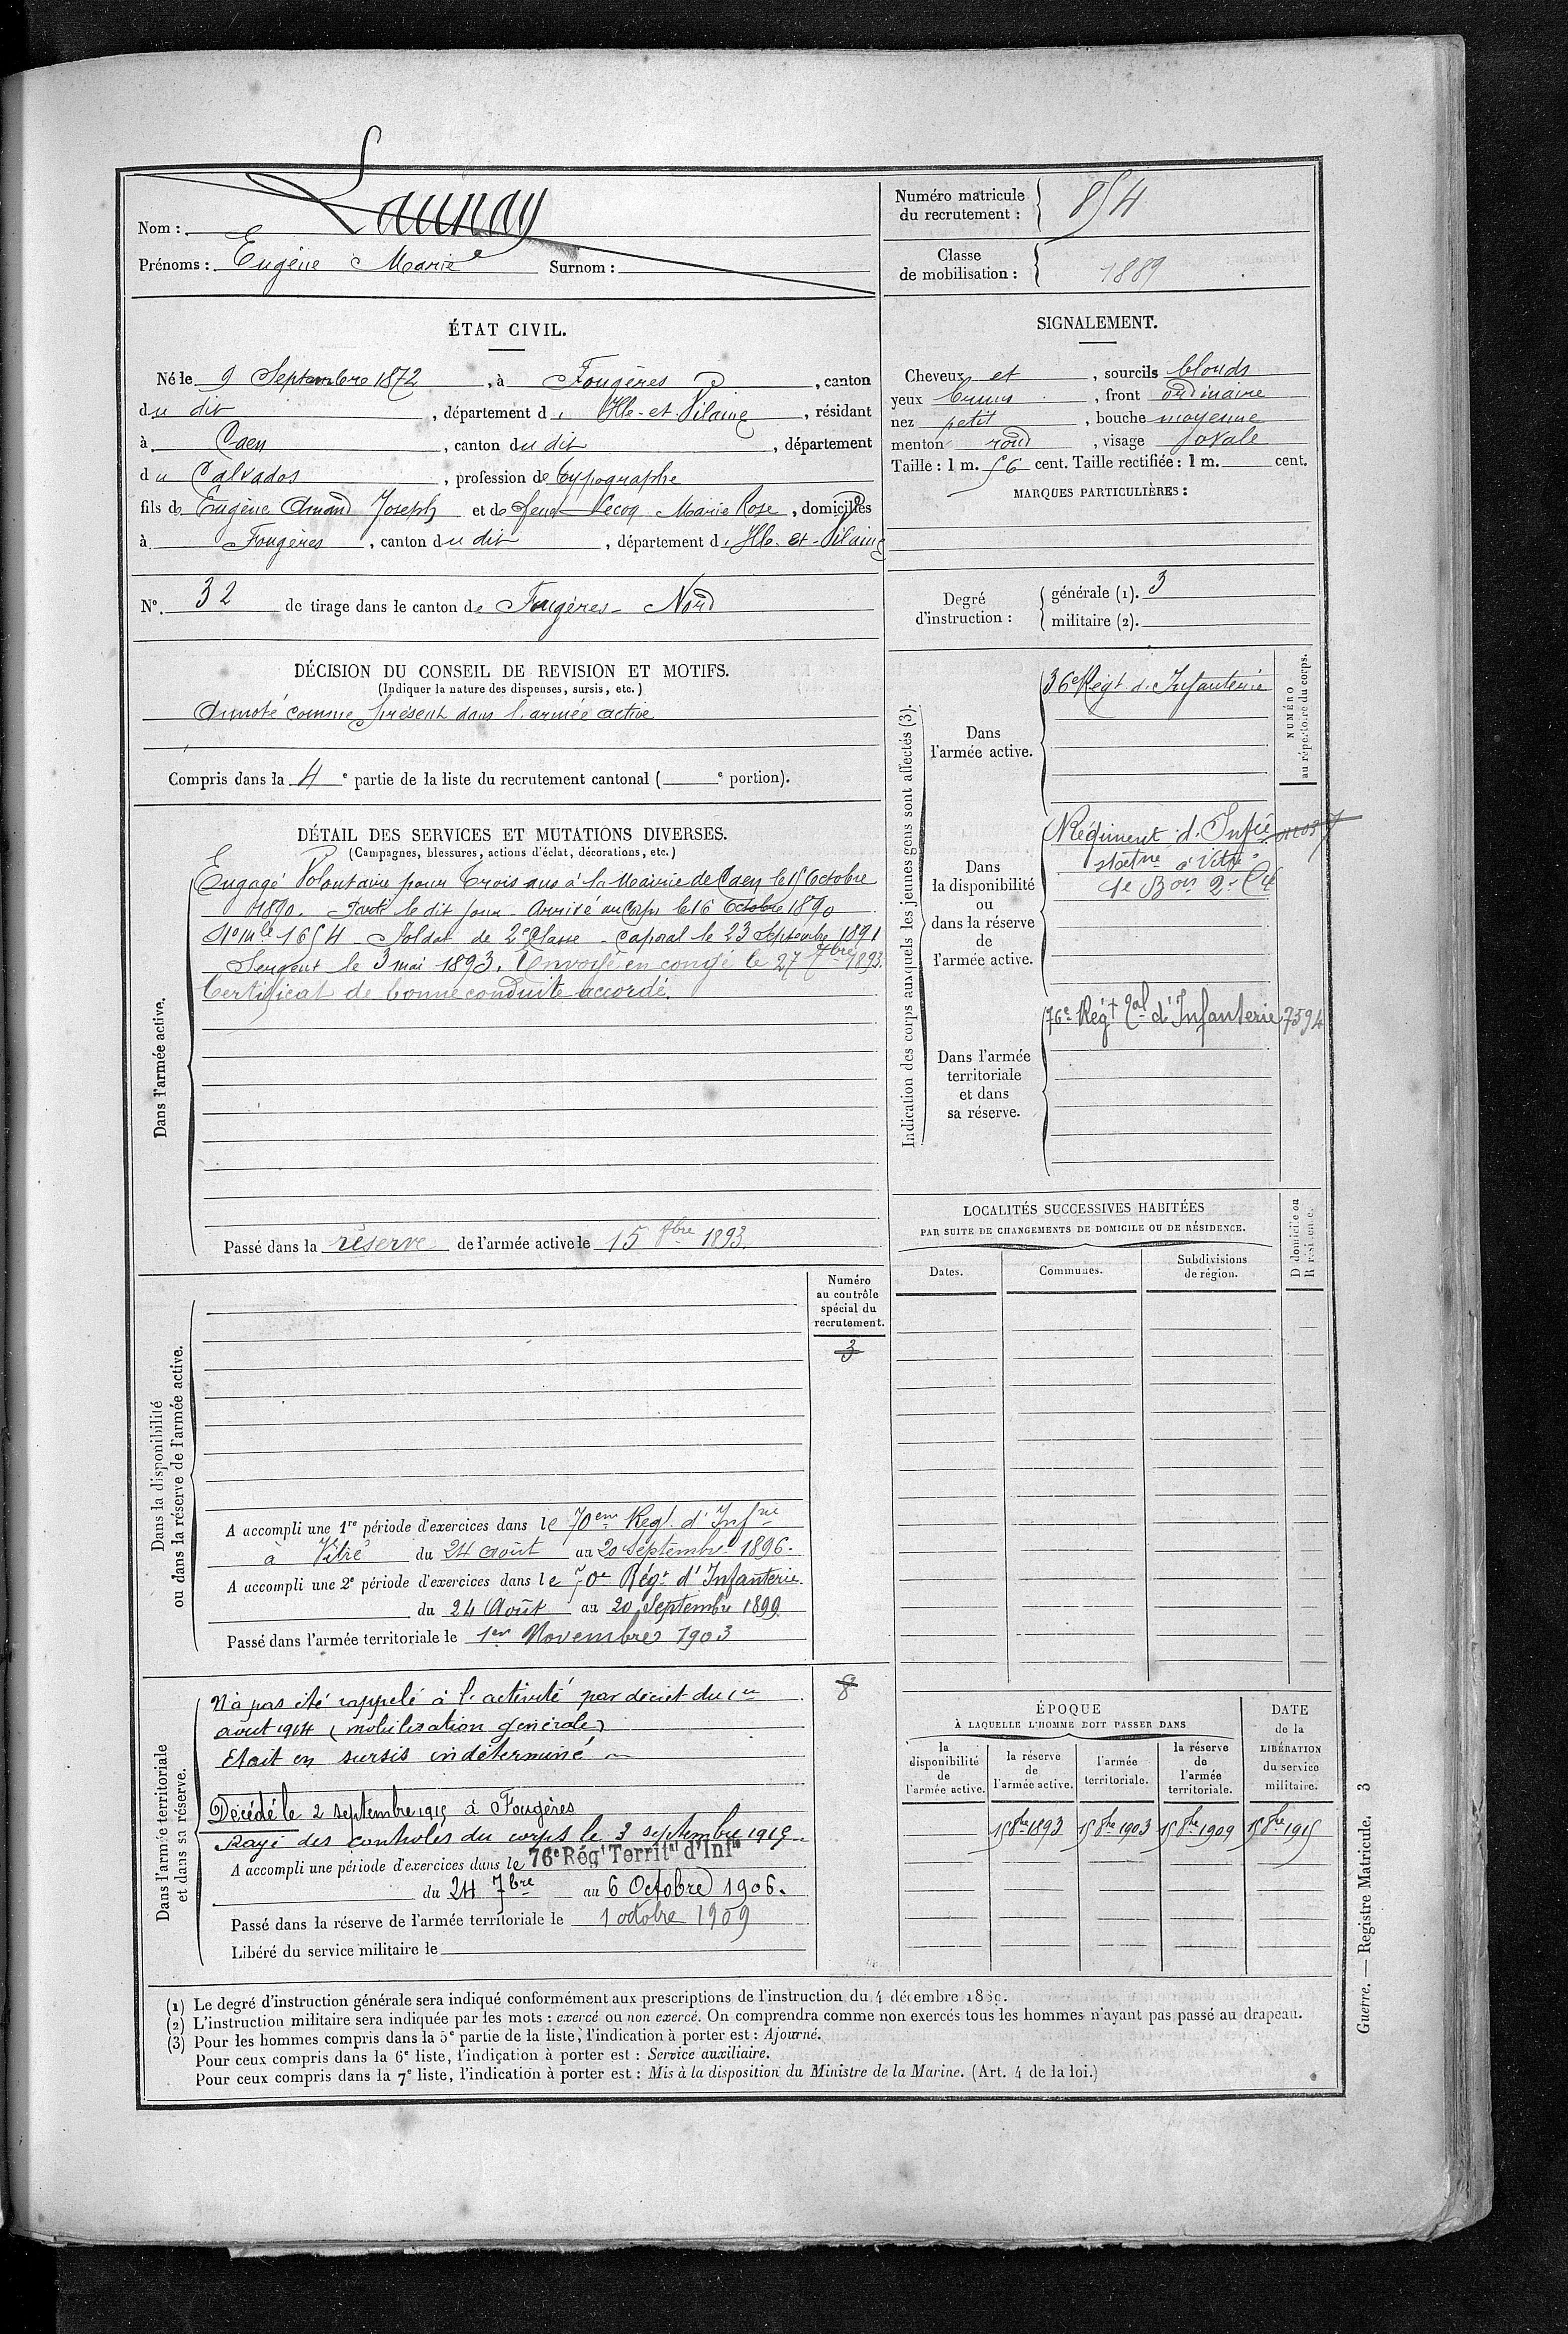 Nom : Launay
Prénoms : Eugène Marie Surnom :
Numéro matricule du recrutement : 854
Classe de mobilisation : 1889
ÉTAT CIVIL.
Né le 9 Septembre 1872, à Fougères, canton
du dit, département d'Ille-et-Vilaine, résidant
à Caen, canton du dit, département
du Calvados, profession de typographe
fils de Eugène Amand Joseph et de feue Lecoq Marie Rose, domiciliés
à Fougères, canton du dit, département d'Ille-et-Vilaine
N° 32 de tirage dans le canton de Fougères-Nord
SIGNALEMENT.
Cheveux et, sourcils blonds
yeux bruns, front ordinaire
nez petit, bouche moyenne
menton rond, visage ovale
Taille : 1 m. 56 cent. Taille rectifiée : 1 m. cent.
MARQUES PARTICULIÈRES :
Degré d'instruction :
générale (1). 3
militaire (2).
DÉCISION DU CONSEIL DE REVISION ET MOTIFS.
(Indiquer la nature des dispenses, sursis, etc.)
Annoté comme présent dans l'armée active
Compris dans la 4e partie de la liste du recrutement cantonal ( e portion).
DÉTAIL DES SERVICES ET MUTATIONS DIVERSES.
(Campagnes, blessures, actions d'éclat, décorations, etc.)
Dans l'armée active.
Engagé Volontaire pour trois ans à la Mairie de Caen le 15 Octobre
1890. Parti le dit jour. Arrivé au Corps le 16 Octobre 1890
No mle 1654 - Soldat de 2e Classe - Caporal le 23 Septembre 1891
Sergent le 3 mai 1893. Envoyé en congé le 27 7bre 1893.
Certificat de bonne conduite accordé.
Passé dans la réserve de l'armée active le 15 8bre 1893.
Indication des corps auxquels les jeunes gens sont affectés (3).
NUMÉRO au répertoire du corps.
Dans l'armée active.
36e Régt d'Infanterie
Dans la disponibilité ou dans la réserve de l'armée active.
Régiment d'Infie
statne à Vitré
1e Bon 2e Cie
Dans l'armée territoriale et dans sa réserve.
76e Régt tal d'Infanterie 7594
LOCALITÉS SUCCESSIVES HABITÉES
PAR SUITE DE CHANGEMENTS DE DOMICILE OU DE RÉSIDENCE.
Dates.
Communes.
Subdivisions de région.
D domicile ou R résidence.
Numéro au contrôle spécial du recrutement.
3
Dans la disponibilité
ou dans la réserve de l'armée active.
A accompli une 1re période d'exercices dans le 70em Regt d'Infrie
à Vitré du 24 août au 20 septembre 1896.
A accompli une 2e période d'exercices dans le 70e Régt d'Infanterie.
du 24 Août au 20 Septembre 1899
Passé dans l'armée territoriale le 1er Novembre 1903
8
Dans l'armée territoriale
et dans sa réserve.
N'a pas été rappelé à l'activité par décret du 1er
aout 1914 (mobilisation générale)
Etait en sursis indéterminé
Décédé le 2 septembre 1915 à Fougères
Rayé des contrôles du corps le 3 septembre 1915.
A accompli une période d'exercices dans le 76e Régt Territal d'Infie
du 24 7bre au 6 Octobre 1906.
Passé dans la réserve de l'armée territoriale le 1 octobre 1909
Libéré du service militaire le
ÉPOQUE
À LAQUELLE L'HOMME DOIT PASSER DANS
la disponibilité de l'armée active.
la réserve de l'armée active.
l'armée territoriale.
la réserve de l'armée territoriale.
DATE de la LIBÉRATION du service militaire.
15 8bre 1893
15 8bre 1903
15 8bre 1909
15 8bre 1915
(1) Le degré d'instruction générale sera indiqué conformément aux prescriptions de l'instruction du 4 décembre 1889.
(2) L'instruction militaire sera indiquée par les mots : exercé ou non exercé. On comprendra comme non exercés tous les hommes n'ayant pas passé au drapeau.
(3) Pour les hommes compris dans la 5e partie de la liste, l'indication à porter est : Ajourné.
Pour ceux compris dans la 6e liste, l'indication à porter est : Service auxiliaire.
Pour ceux compris dans la 7e liste, l'indication à porter est : Mis à la disposition du Ministre de la Marine. (Art. 4 de la loi.)
Guerre. — Registre Matricule. 3